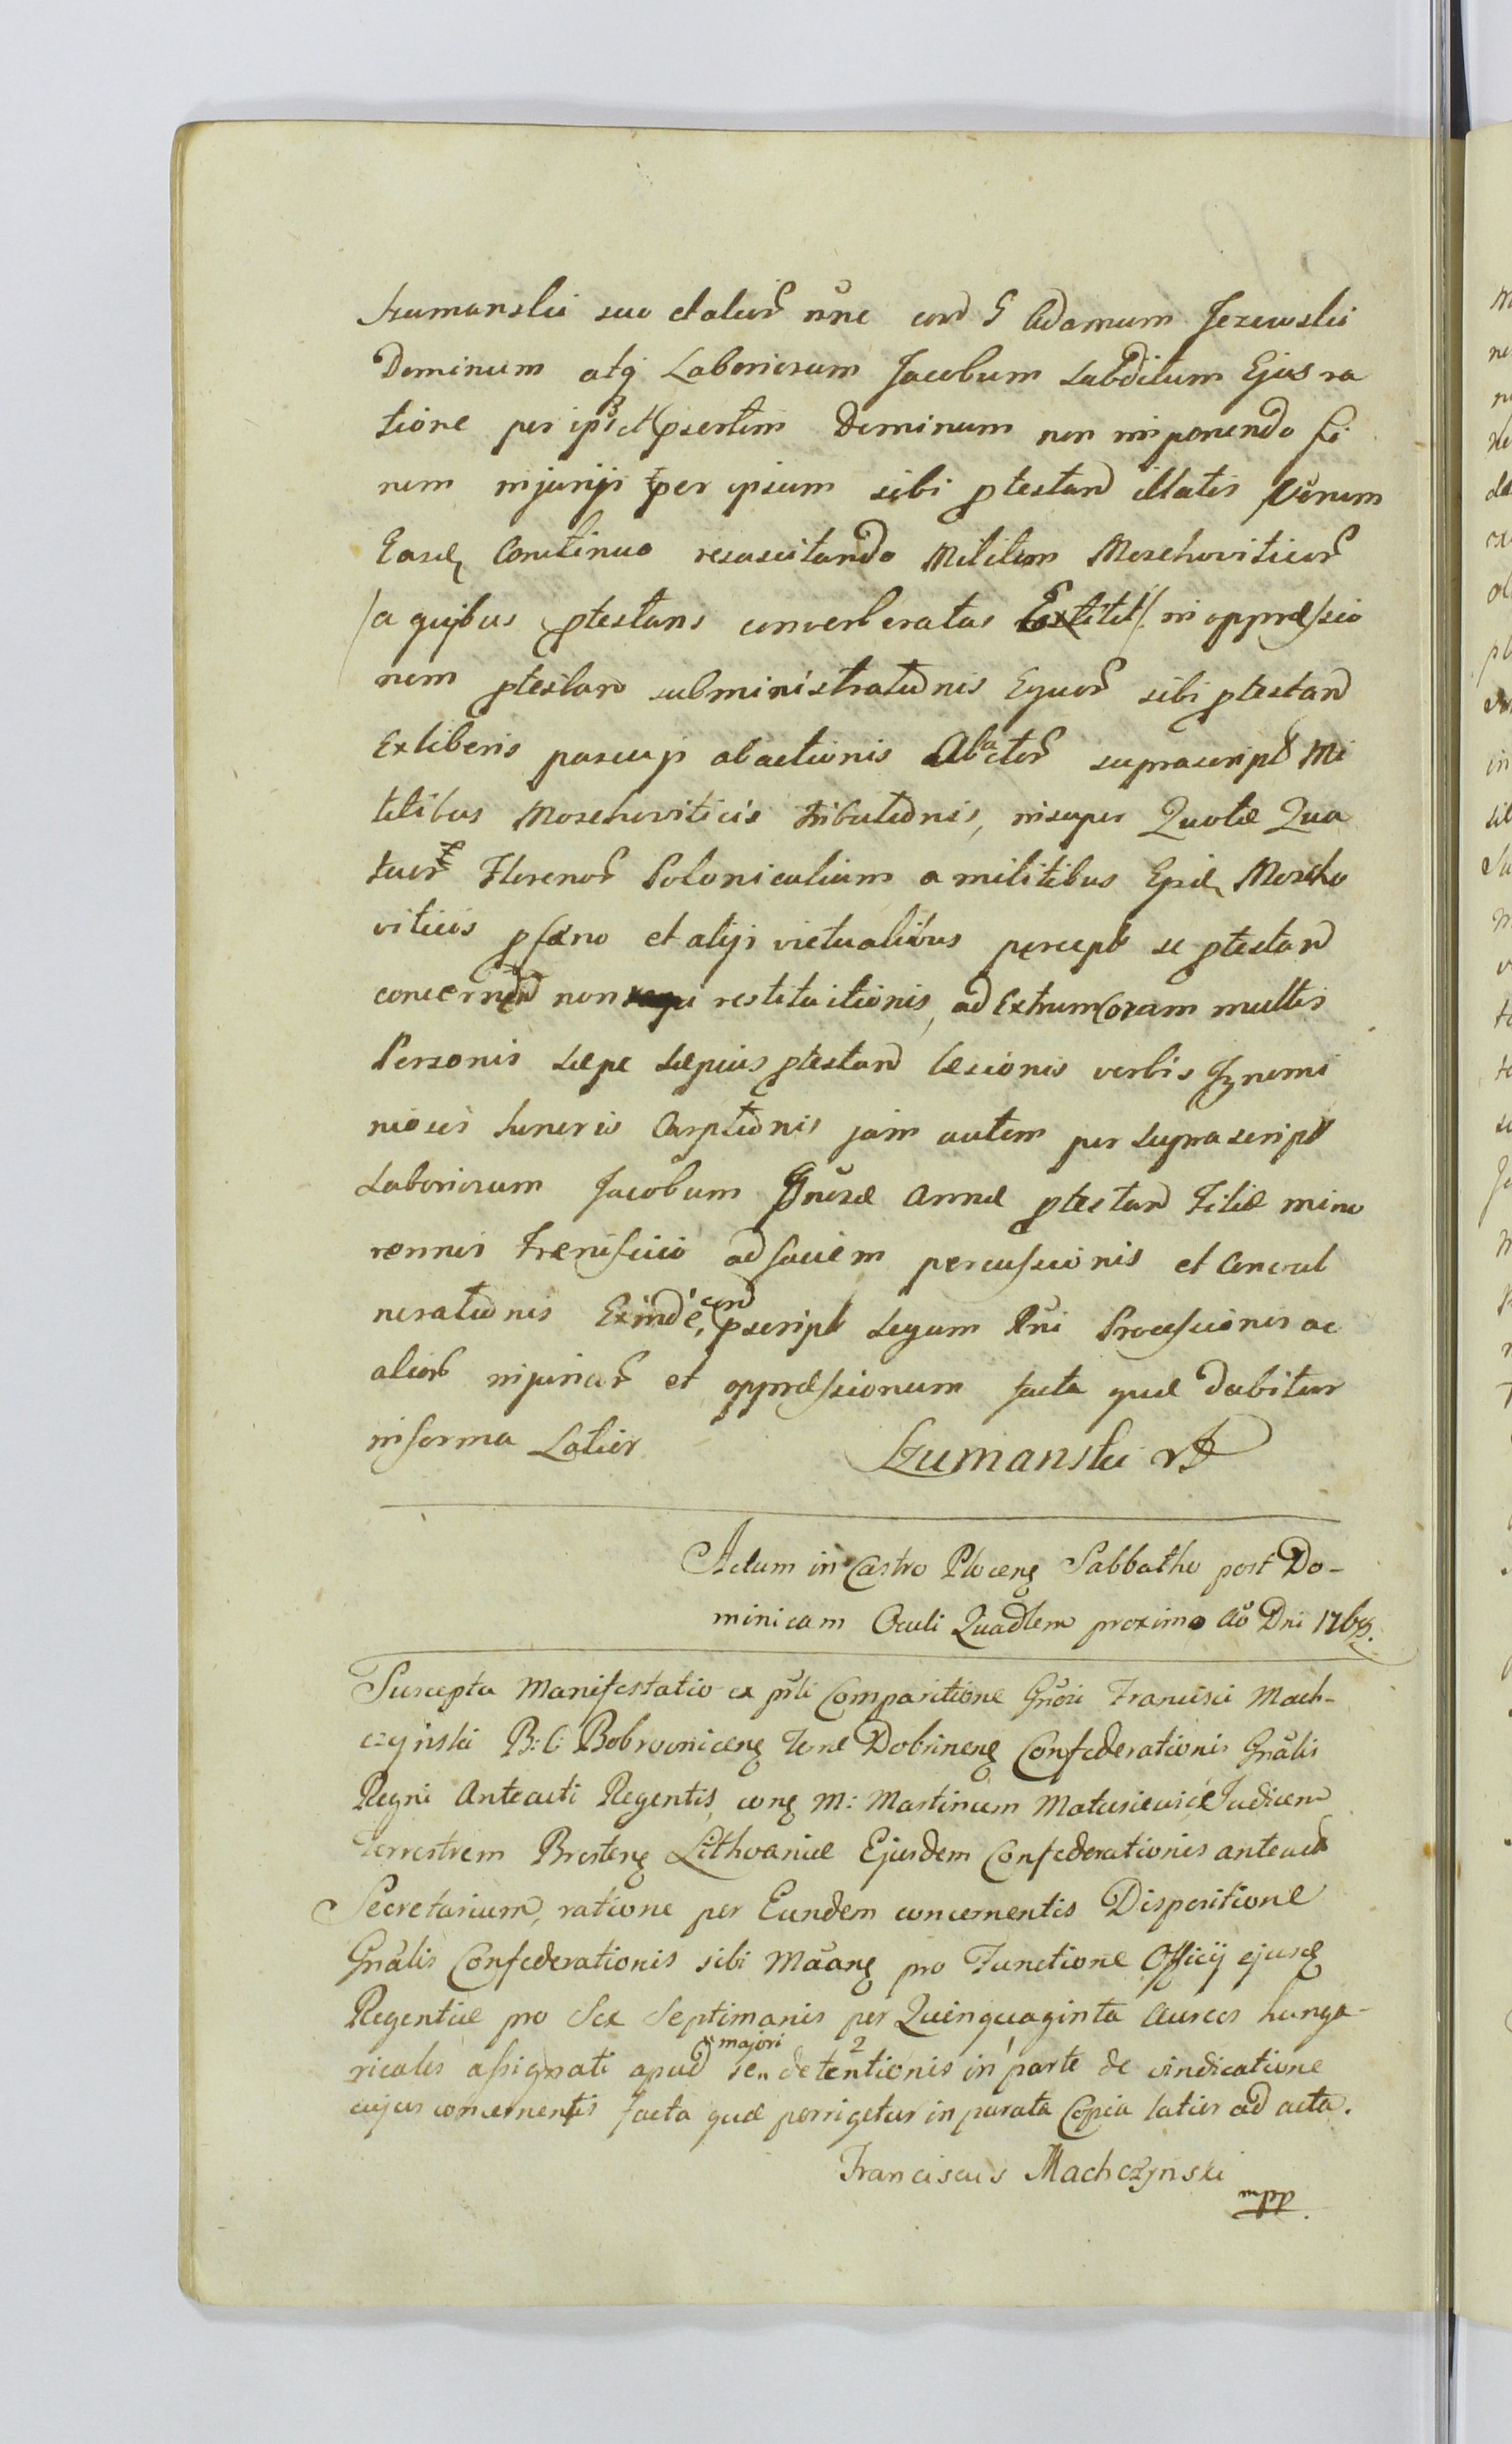 Szumanski suo et alior nõe con G Adamum Jezewski
Dominum atq Laboriosum Jacobum Subditum Ejus ra
tione per ips et psertim Dominum non imponendo fi
nem injurijs per ipsum sibi ptestan illatis, Verum
Easdẽ Continuo resuscitando Militem Moschoviticor
/a quibus ptestans converberatus Extitit/ in oppræssio
nem ptestan subministrationis Equor sibi ptestan
Ex liberis pascujs abactionis Abactor suprascript Mi
litibus Moschoviticis tributionis, insuper Quotæ Qua
tuor Florenor Polonicalium a militibus Ejusdẽ Moscho
viticis p fæno et alijs victualibus percept se ptestan
concernen non restituitionis, ad Extrum Coram multis
Personis Sæpe Sæpius ptestan læsionis verbis Ignomi
niosis honoris Carptionis jam autem per suprascript
Laboriosum Jacobum Gnosæ Annæ ptestan Filiæ mino
rennis Frenisscio ad faciem percussionis et Convul
nerationis Exinde, con pscript Legum Rni Processionis ac
alior injuriar et oppræssionum facta quæ dabitur
in forma Latior
Szumanski
Actum in Castro Plocenȩ Sabbatho post Do-
minicam Oculi Quadlem proximo Ao Dni 1768.
Suscepta Manifestatio ex psli Comparitione Gnosi Francisci Mach-
czyński B: C: Bobrovnicenȩ Terræ Dobrinenȩ Confederationis Gnalis
Regni Anteacti Regentis, conȩ M: Martinum Matusiewicz Judicem
Terrestrem Brestenȩ Lithvaniæ Ejusdem Confederationis anteact
Secretarium, ratione per Eundem concernentis Dispositione
Gnalis Confederationis sibi Maanȩ pro Functione Officij ejusdȩ
Regentiæ pro Sex Septimanis per Quinquaginta Aureos hunga-
ricales assignati apud se,, majori detentionis in parte de vindicatione
cujus concernentis facta quæ porrigetur in parata Copia latior ad acta.
Franciscus Machczynski
mpp.